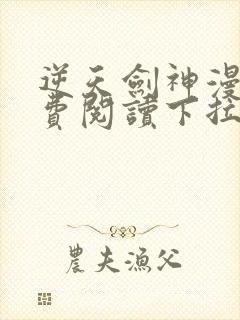 逆天劍神漫
費閱讀下拉
農夫漁父